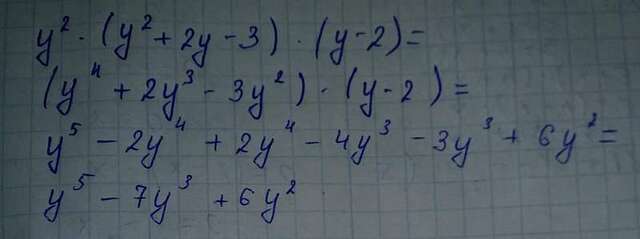 y² · (y² + 2y - 3) · (y - 2) =
(y⁴ + 2y³ - 3y²) · (y - 2) =
y⁵ - 2y⁴ + 2y⁴ - 4y³ - 3y³ + 6y² =
y⁵ - 7y³ + 6y²